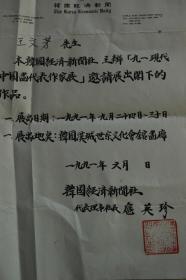 韓國經濟新聞
The Korea Economic Daily
王文芳 先生
本韓國經濟新聞社主辦「九一現代
中國畫代表作家展」邀請展出閣下的
作品。
一展出日期：一九九一年九月二十四－三十日
一展出地点：韓國漢城世宗文化會館画廊
一九九一年六月 日
韓國經濟新聞社
代表理事社長 盧英珍